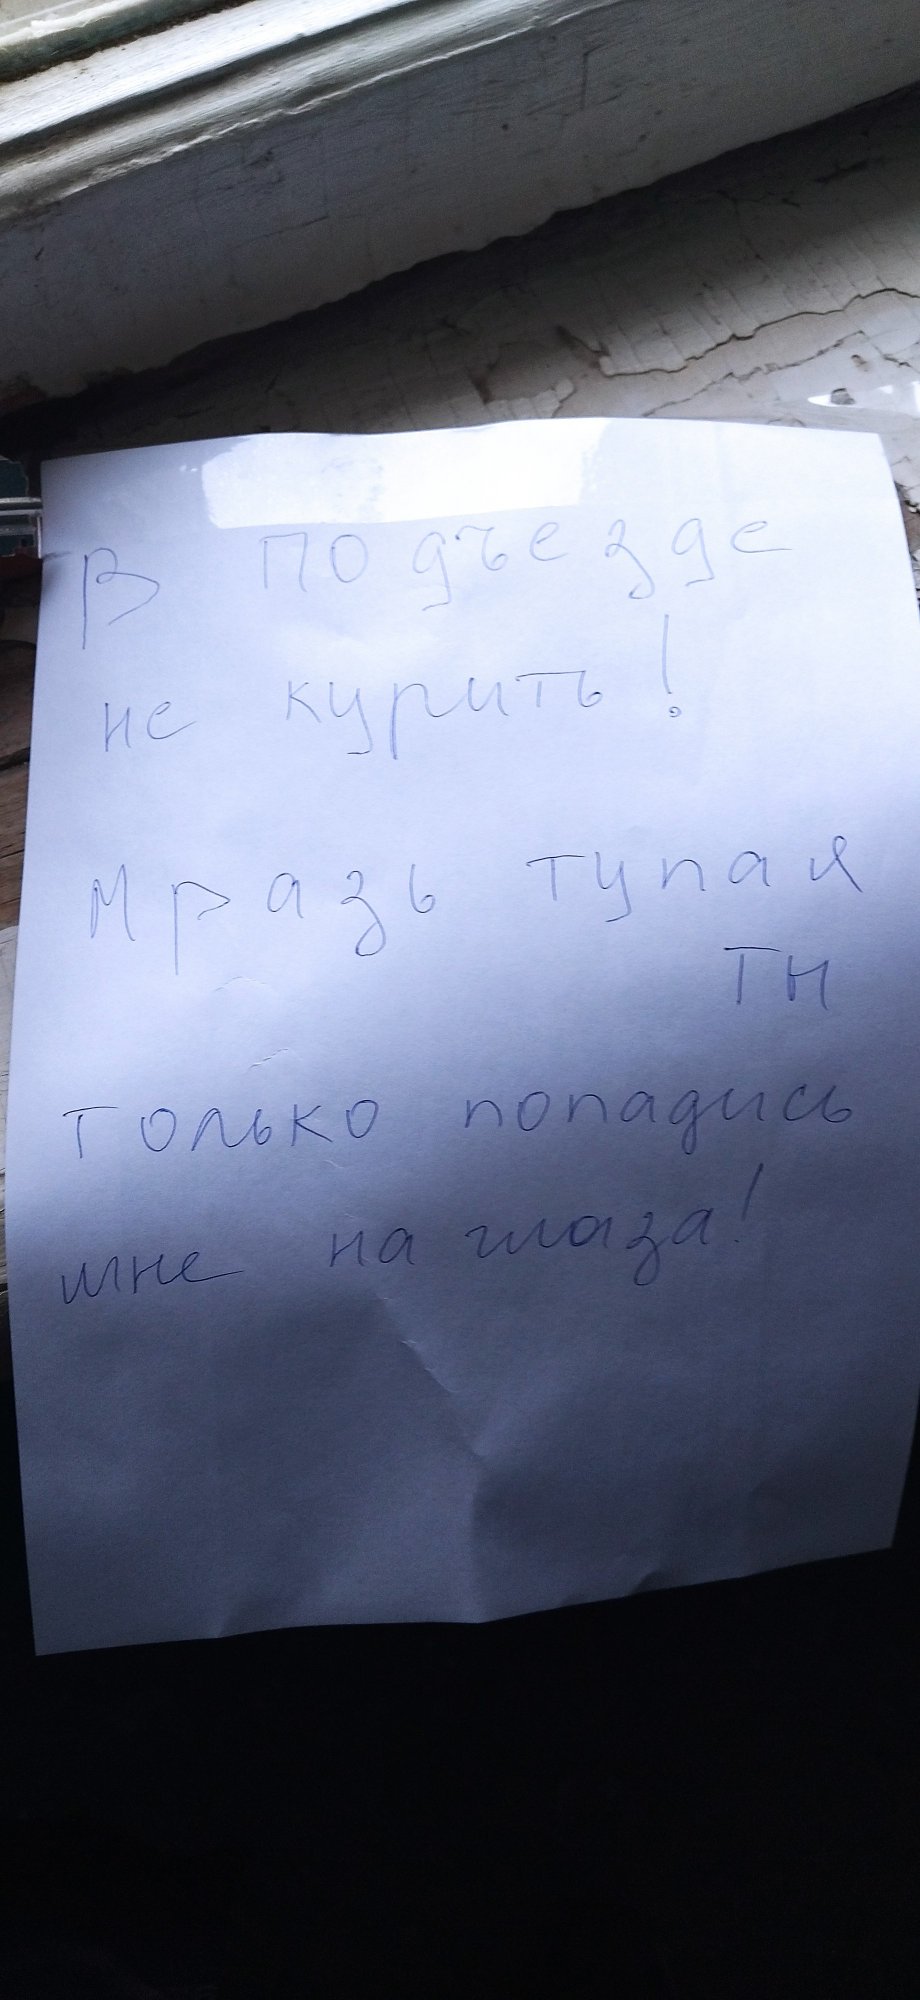 В подъезде
не курить!
Мразь тупая
ТН
только попадись
мне на глаза!